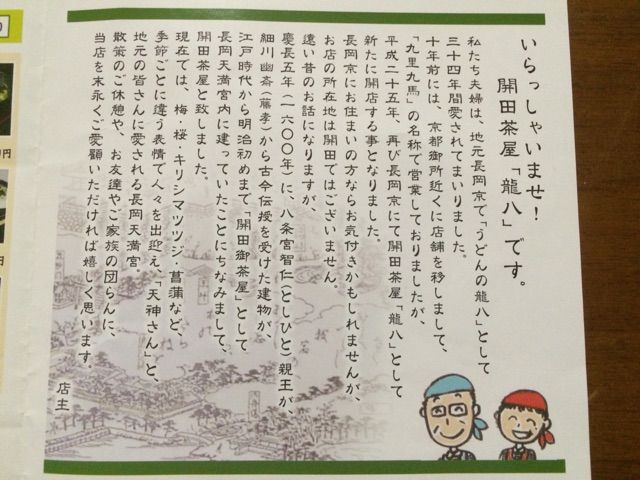 いらっしゃいませ！
開田茶屋「龍八」です。
私たち夫婦は、地元長岡京で「うどんの龍八」として
三十四年間愛されてまいりました。
十年前には、京都御所近くに店舗を移しまして、
「九里九馬」の名称で営業しておりましたが、
平成二十五年、再び長岡京にて開田茶屋「龍八」として
新たに開店する事となりました。
長岡京にお住まいの方ならお気付きかもしれませんが、
お店の所在地は開田ではございません。
遠い昔のお話になりますが、
慶長五年（一六〇〇年）に、八条宮智仁（としひと）親王が、
細川幽斎（藤孝）から古今伝授を受けた建物が、
江戸時代から明治初めまで「開田御茶屋」として
長岡天満宮内に建っていたことにちなみまして、
開田茶屋と致しました。
現在では、梅・桜・キリシマツツジ・菖蒲など、
季節ごとに違う表情で人々を出迎え、「天神さん」と、
地元の皆さんに愛される長岡天満宮。
散策のご休憩や、お友達やご家族の団らんに、
当店を末永くご愛顧いただければ嬉しく思います。
店主
円
円